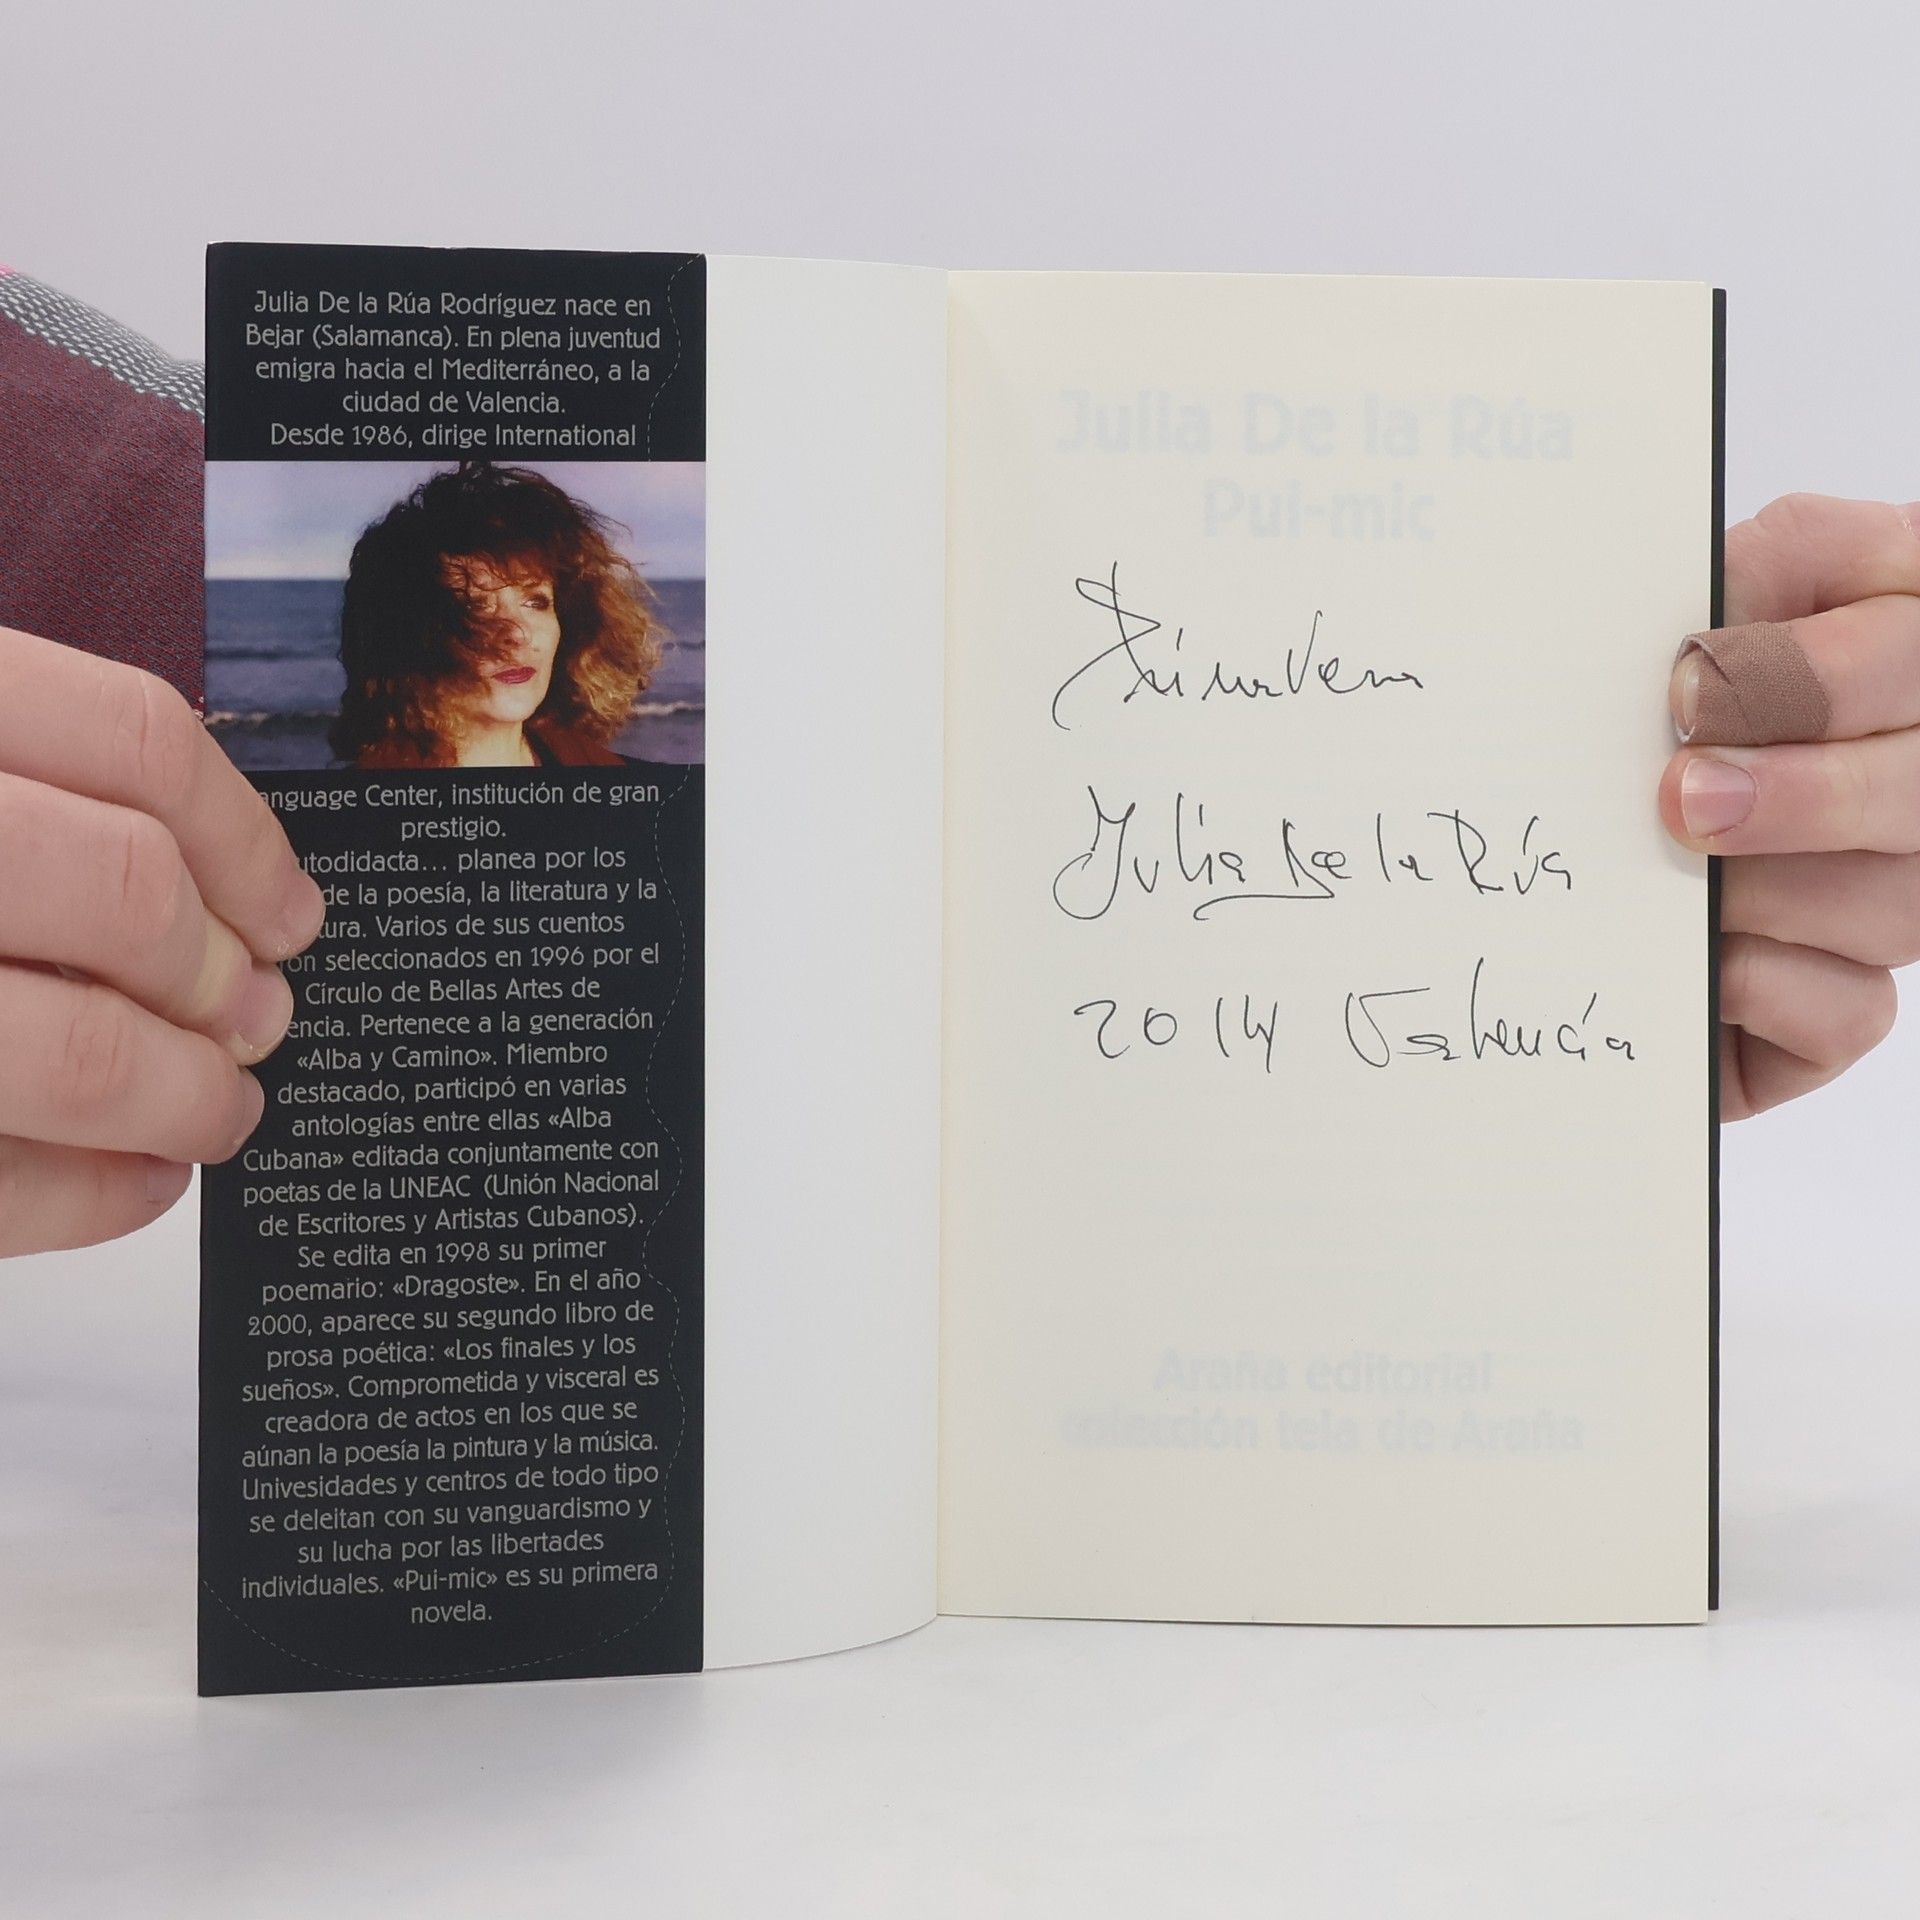 Julia De la Rúa Rodríguez nace en
Bejar (Salamanca). En plena juventud
emigra hacia el Mediterráneo, a la
ciudad de Valencia.
Desde 1986, dirige International
anguage Center, institución de gran
prestigio.
utodidacta... planea por los
de la poesía, la literatura y la
tura. Varios de sus cuentos
ron seleccionados en 1996 por el
Círculo de Bellas Artes de
encia. Pertenece a la generación
«Alba y Camino». Miembro
destacado, participó en varias
antologías entre ellas «Alba
Cubana» editada conjuntamente con
poetas de la UNEAC (Unión Nacional
de Escritores y Artistas Cubanos).
Se edita en 1998 su primer
poemario: «Dragoste». En el año
2000, aparece su segundo libro de
prosa poética: «Los finales y los
sueños». Comprometida y visceral es
creadora de actos en los que se
aúnan la poesía la pintura y la música.
Univesidades y centros de todo tipo
se deleitan con su vanguardismo y
su lucha por las libertades
individuales. «Pui-mic» es su primera
novela.
Julia De la Rúa
Pui-mic
Primavera
Julia De la Rúa
2014 Valencia
Araña editorial
colección tela de Araña